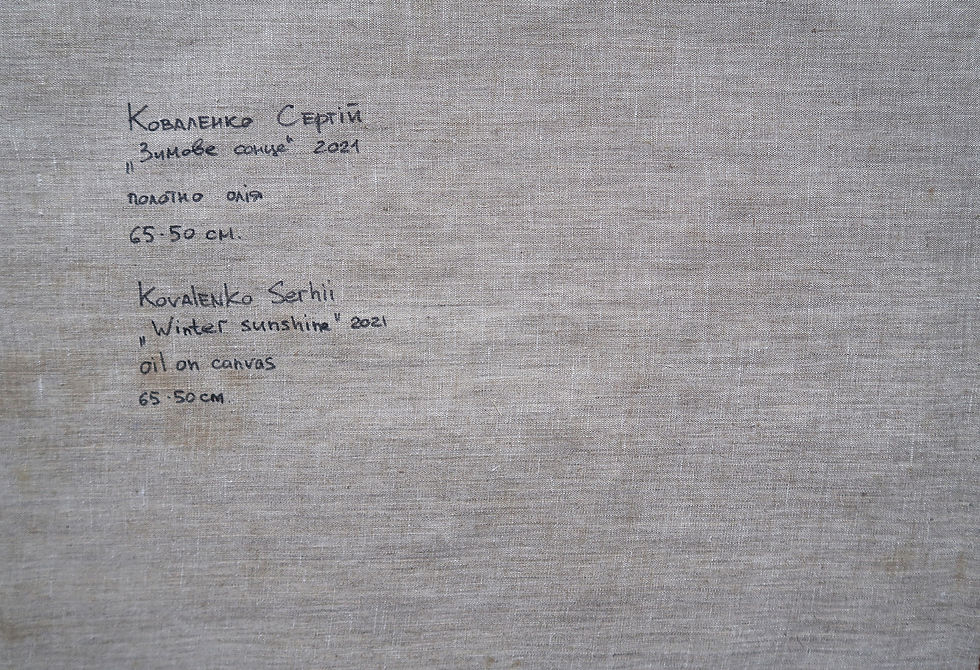 Коваленко Сергій
„Зимове сонце" 2021
полотно олія
65·50 см.
Kovalenko Serhii
„Winter sunshine" 2021
oil on canvas
65·50 cм.